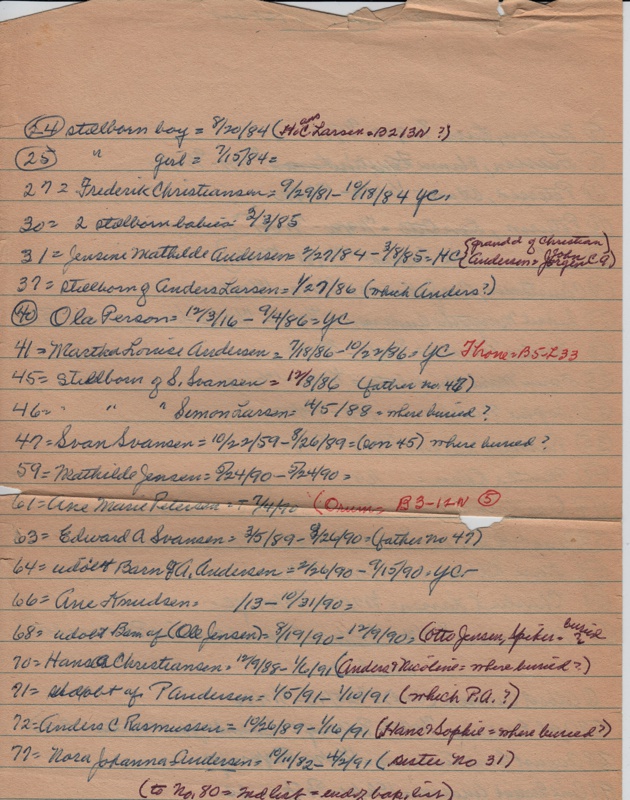 24 stillborn boy = 8/20/84 (H. and C. Larsen = B213N ?)
25 " girl = 7/15/84 =
27 = Frederik Christiansen = 9/29/81 - 10/18/84 YC.
30 = 2 stillborn babies 2/3/85
31 = Jensine Mathilde Andersen = 2/27/84 - 3/8/85 = HC (grandd of Christian Andersen = John Jorgen C. A)
37 = stillborn of Anders Larsen = 1/27/86 (which Anders?)
40 Ola Person = 12/3/16 - 9/4/86 = YC
41 = Martha Louise Andersen = 7/18/86 - 10/22/86 = YC Throne = B5-L33
45 = stillborn of S. Svansen = 12/8/86 (father no. 47)
46 = " " " Simon Larsen = 4/5/88 = where buried?
47 = Svan Svansen = 10/22/59 - 8/26/89 = (son 45) where buried?
59 = Mathilde Jensen = 5/24/90 - 5/24/90 =
61 = Ane Marie Petersen = + 7/4/90 (Orum = B3-12N 5
63 = Edward A Svansen = 3/5/89 - 8/26/90 = (father no 47)
64 = udöbt Barn of A. Andersen = 2/26/90 - 9/15/90 = YC -
66 = Ane Knudsen = /13 - 10/31/90 =
68 = udobt Barn af (Ole Jensen) = 8/19/90 - 12/9/90 = (Otto Jensen, Spiker = buried
70 = Hans C Christiansen = 12/9/88 - 1/6/91 (Anders & Nicoline = where buried?)
71 = udobt af P Andersen = 1/5/91 - 1/10/91 (which P.A.?)
72 = Anders C Rasmussen = 10/26/89 - 1/16/91 (Hans & Sophie = where buried?)
77 = Nora Johanna Andersen = 10/11/82 - 4/2/91 (sister no 31)
(to No. 80 = 2nd list = end of bap. list)